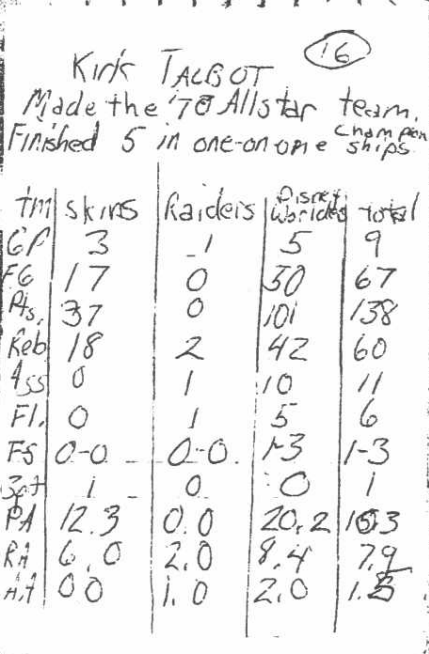 16
Kirk TALBOT
Made the '78 Allstar team.
Finished 5 in one-on-one Champion ships
Tm Skins Raiders Disney Worlders total
GP 3 1 5 9
FG 17 0 50 67
Pts. 37 0 101 138
Reb 18 2 42 60
Ass 0 1 10 11
Fl. 0 1 5 6
FS 0-0 0-0 1-3 1-3
3pt 1 0 0 1
PA 12.3 0.0 20.2 15.3
RA 6.0 2.0 8.4
AA 00 1.0 2.0